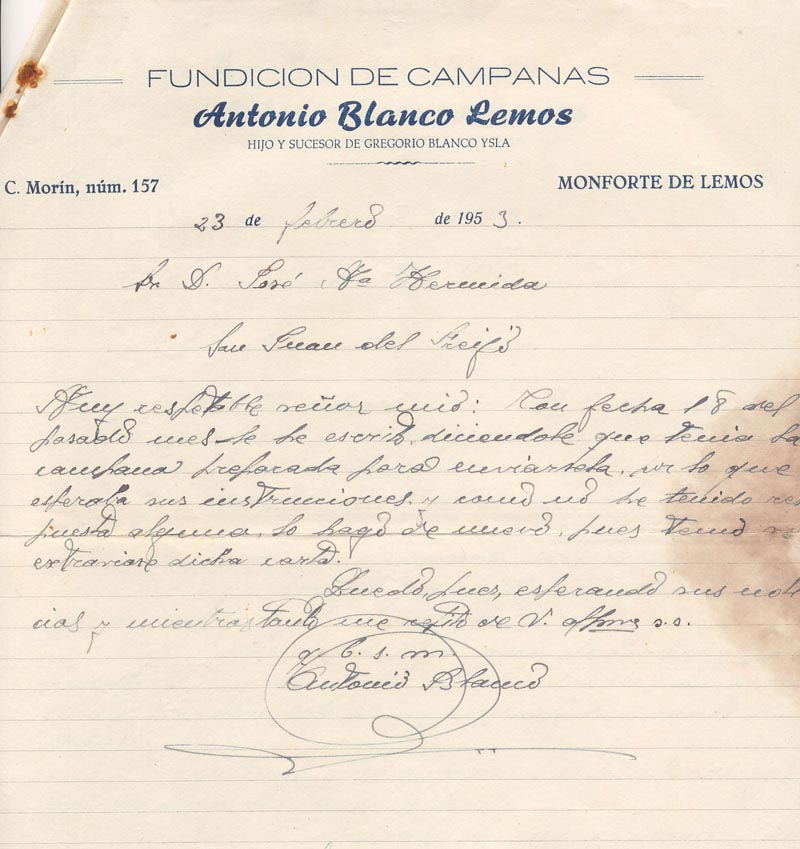 FUNDICION DE CAMPANAS
Antonio Blanco Lemos
HIJO Y SUCESOR DE GREGORIO BLANCO YSLA
C. Morín, núm. 157
MONFORTE DE LEMOS
23 de febrero de 1953.
Sr D. José Mª Hermida
San Juan del
Muy respetable señor mio: Con fecha 18 del
pasado mes le he escrito diciendole que tenia la
campana preparada para enviarsela, por lo que
esperaba sus instrucciones y como no he tenido res
puesta alguna, lo hago de nuevo, pues temo se
extraviase dicha carta.
Quedo, pues, esperando sus noti
cias y mientras tanto me repito de V. affmo s.s.
q. b. s. m.
Antonio Blanco